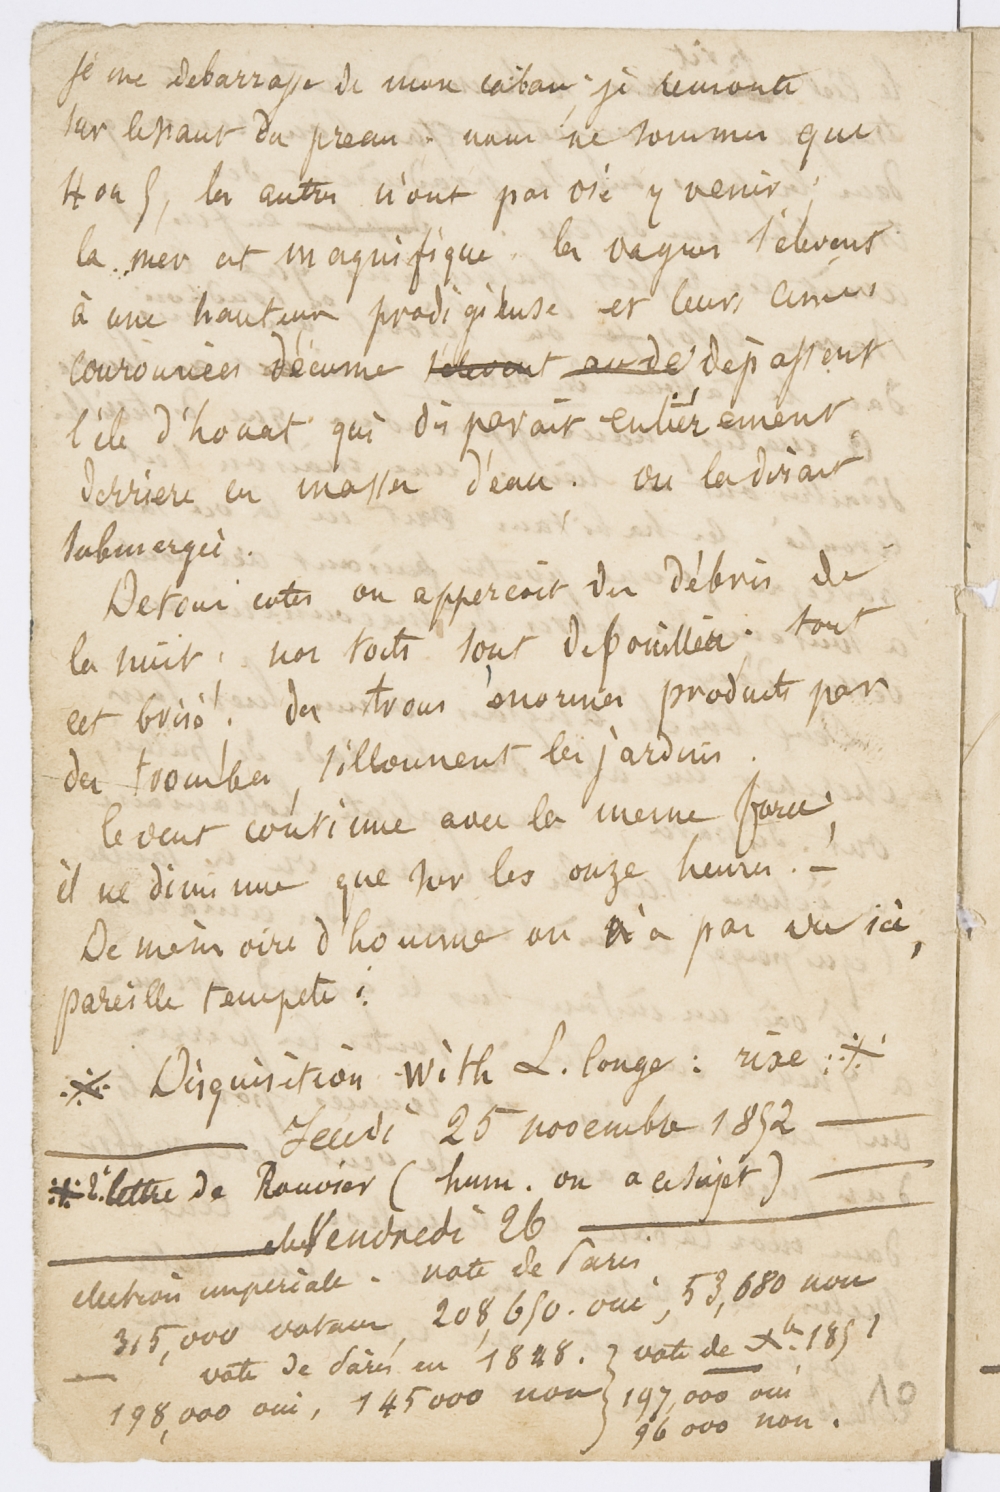 Je me debarrasse de mon caban, je remonte
sur le haut du preau. nous ne sommes que
4 ou 5, les autres n'ont pas osé y venir,
la mer est magnifique. les vagues s'elevent
à une hauteur prodigieuse et leurs cimes
couronnées d'écume s'elevent au de dépassent
l'île d'houat qui disparait entièrement
derriere ces masses d'eau. on la dirait
submergée.
De tous cotes on apperçoit des débris de
la nuit, nos toits sont depouillés, tout
est brisé! des trous énormes produits par
des trombes, sillonnent les jardins.
le vent continue avec la meme force,
il ne diminue que sur les onze heures. –
De memoire d'homme on n'a pas vu ici,
pareille tempete!
※ Disquisition with L. longe : rixe ※
Jeudi 25 novembre 1852
※ 2e lettre de Rouvier (hum. on a ce sujet)
Vendredi 26
election imperiale. vote de Paris
315,000 votans, 208,650. oui, 53,680 non
vote de Paris en 1848. } vote de Xbre 1851
198,000 oui, 145000 non } 197,000 oui
96 000 non.
10